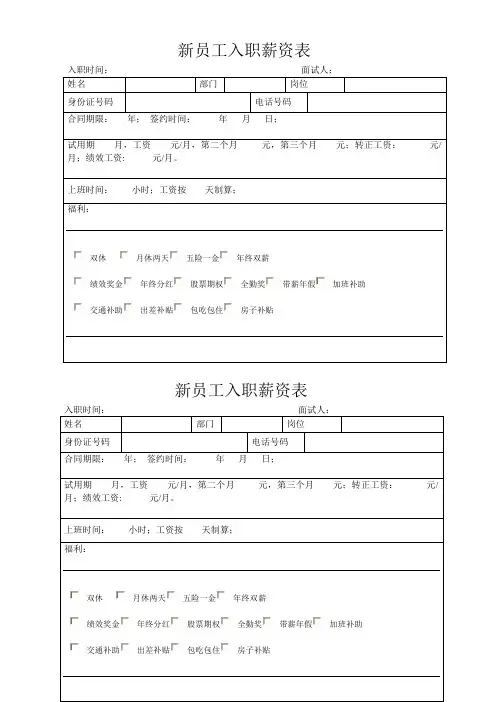 新员工入职薪资表
入职时间： 面试人：
姓名 部门 岗位
身份证号码 电话号码
合同期限： 年； 签约时间： 年 月 日；
试用期 月，工资 元/月，第二个月 元，第三个月 元；转正工资： 元/
月；绩效工资: 元/月。
上班时间： 小时；工资按 天制算；
福利：
双休 月休两天 五险一金 年终双薪
绩效奖金 年终分红 股票期权 全勤奖 带薪年假 加班补助
交通补助 出差补贴 包吃包住 房子补贴
新员工入职薪资表
入职时间： 面试人：
姓名 部门 岗位
身份证号码 电话号码
合同期限： 年； 签约时间： 年 月 日；
试用期 月，工资 元/月，第二个月 元，第三个月 元；转正工资： 元/
月；绩效工资: 元/月。
上班时间： 小时；工资按 天制算；
福利：
双休 月休两天 五险一金 年终双薪
绩效奖金 年终分红 股票期权 全勤奖 带薪年假 加班补助
交通补助 出差补贴 包吃包住 房子补贴